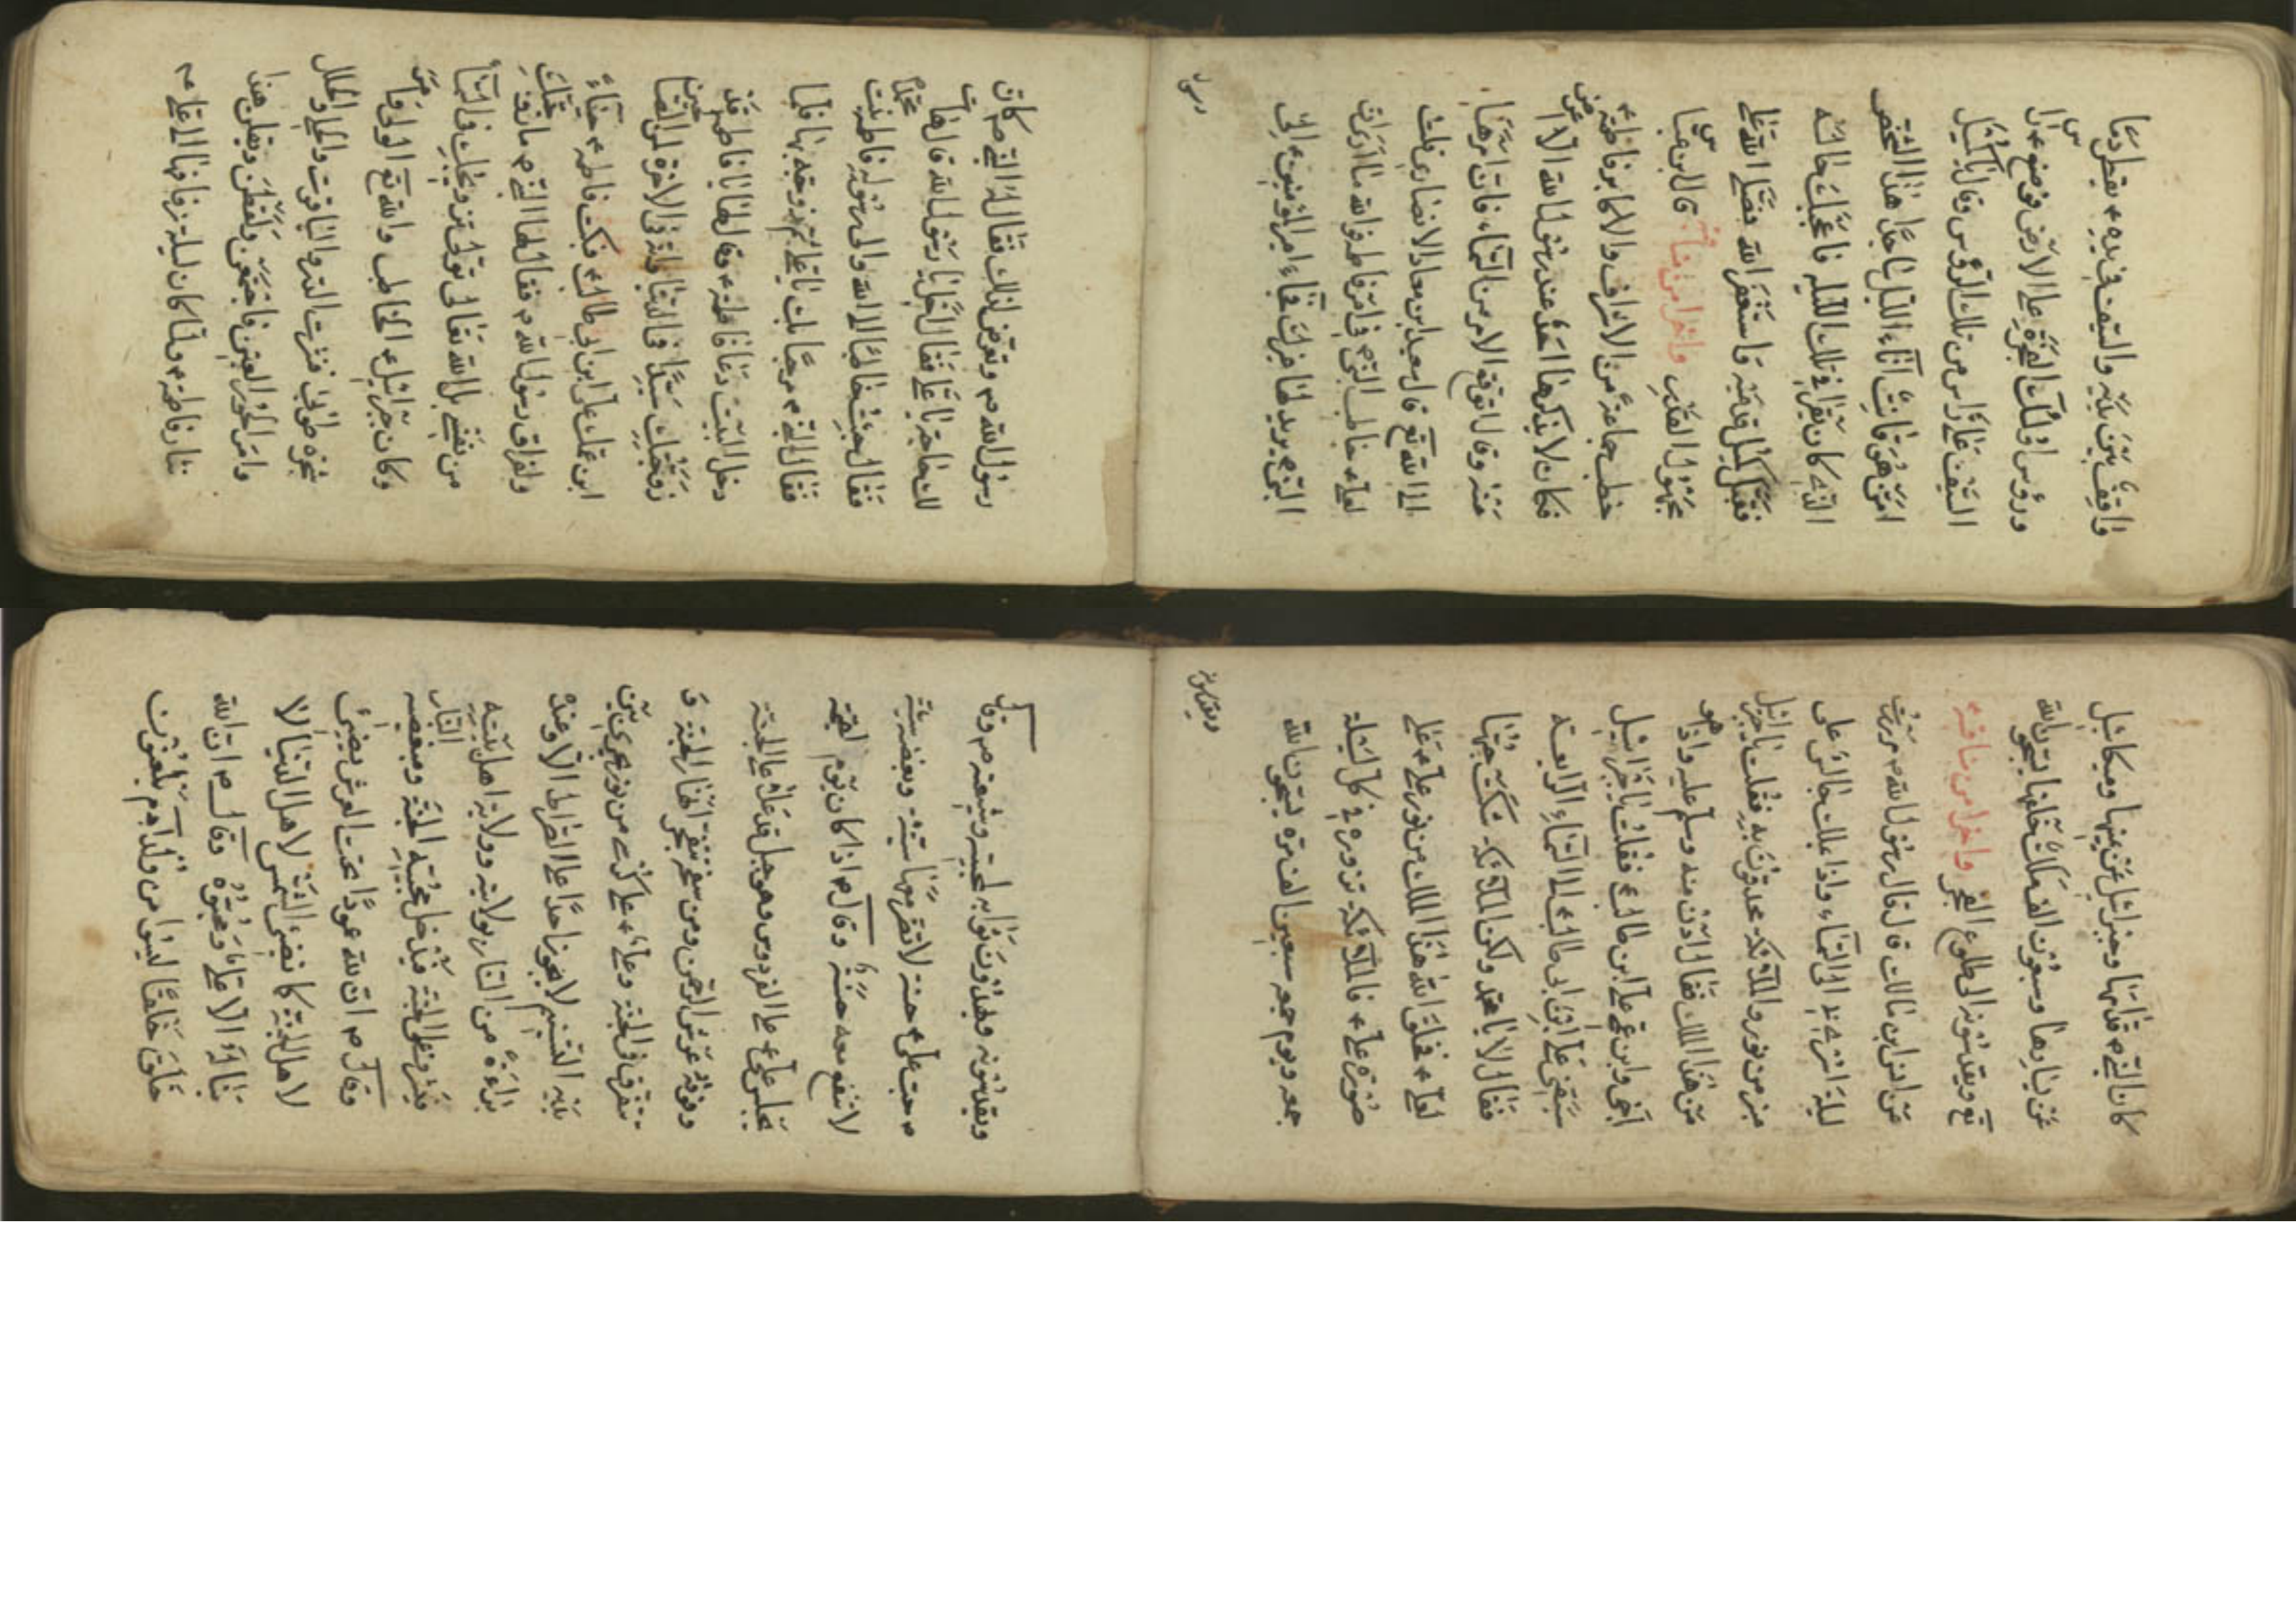 واقف بين يديه والسيف في يده ع يقطر دما
ورؤس اولئك الفجرة على الارض فوضع ع راس
السيف على راس من تلك الرؤس وقال يا كميل
امن هو قانت اناء الليل هذا الشخص
الذي كان يقرا في تلك الليلة فاعجبك حاله
فقبل كميل قدميه واستغفر الله وصلى الله على
مجهول القدر واخرى مناقبه قال ابن عباس
خطب جماعة من الاشراف والاكابر فاطمة ع
فكان لا يذكرها احد عند رسول الله الا اعرض
عنه وقال اتوقع الامر من السماء فان امرها
الى الله تع قال سعد ابن معاذ الانصاري فقلت
لعلي ع خاطب النبي ص في امر فاطمة فوالله ما ارى ان
النبي ص يريد لها غيرك فجاء امير المؤمنين ع الى
رسول
رسول الله ص وتعرض لذلك فقال له النبي ص كان
لك حاجة يا علي فقال اجل يا رسول الله قال هات
فقال جئت خاطبا الى الله والى رسوله فاطمة بنت محمد
فقال النبي ص مرحبا بك يا علي ثم زوجه بها فلما
دخل البيت دعا فاطمة ع وقال لها يا فاطمة قد
زوجتك سيدا في الدنيا وانه في الاخرة لمن الصالحين
ابن عمك علي ابن ابي طالب ع فبكت فاطمة ع حياء
ولفراق رسول الله ص فقال لها النبي ص ما زوجتك
من نفسي بل الله تعالى تولى تزويجك في السماء
وكان جبرائيل ع الخاطب والله تع الولي وامر
شجرة طوبى فنثرت الدر والياقوت والحلي والحلل
وامر الحور العين فاجتمعن ولقطن ويقلن هذا
نثار فاطمة ع ولما كان ليلة زفافها الى علي ع
كان النبي ص قدامها وجبرائيل عن يمينها وميكائيل
عن يسارها وسبعون الف ملك خلفها يسبحون الله
تع ويقدسونه الى طلوع الفجر واخرى من مناقبه
عن انس ابن مالك قال قال رسول الله ص مررت
ليلة اسري بي الى السماء واذا بملك جالس على
منبر من نور والملائكة يحدقون به فقلت يا جبرائيل
من هذا الملك فقال ادن منه وسلم عليه واذا هو
اخي وابن عمي علي ابن ابي طالب ع فقلت يا جبرائيل
سبقني علي ابن ابي طالب ع الى السماء الرابعة
فقال لا يا محمد ولكن الملائكة شكت حبها
لعلي ع فخلق الله هذا الملك من نور على
صورة علي ع فالملائكة تزوره في كل ليلة
جمعة ويوم جمعة سبعين الف مرة يسبحون الله
ويقدسونه
ويقدسونه ويهدون ثوابه لمحبيه وشيعته ص وقال
ص حب علي ع حسنة لا تضر معها سيئة وبغضه سيئة
لا تنفع معه حسنة وقال ص اذا كان يوم القيمة
يجلس علي ع على الفردوس وهو جبل قد علا على الجنة
وفوقه عرش الرحمن ومن سفحه تتفجر انهار الجنة و
تتفرق في الجنة وعلي ع على كرسي من نور يجري بين
يديه التسنيم لا يجوز احد على الصراط الا وعنده
براءة من النار بولايته وولاية اهل بيته
فيشرف على الجنة فيدخل محبيه الجنة ومبغضيه النار
وقال ص ان لله عمودا تحت العرش يضيئ
لاهل الجنة كما تضيئ الشمس لاهل الدنيا لا
يناله الا علي ومحبوه وقال ص ان الله
خلق خلقا ليسوا من ولد ادم يلعنون